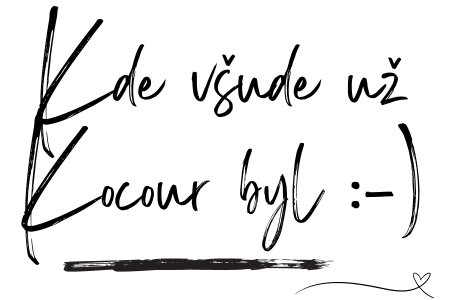 Kde všude už
Kocour byl :-)